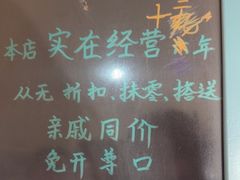 十二
本店实在经营年
从无折扣、抹零、搭送
亲戚同价
免开尊口